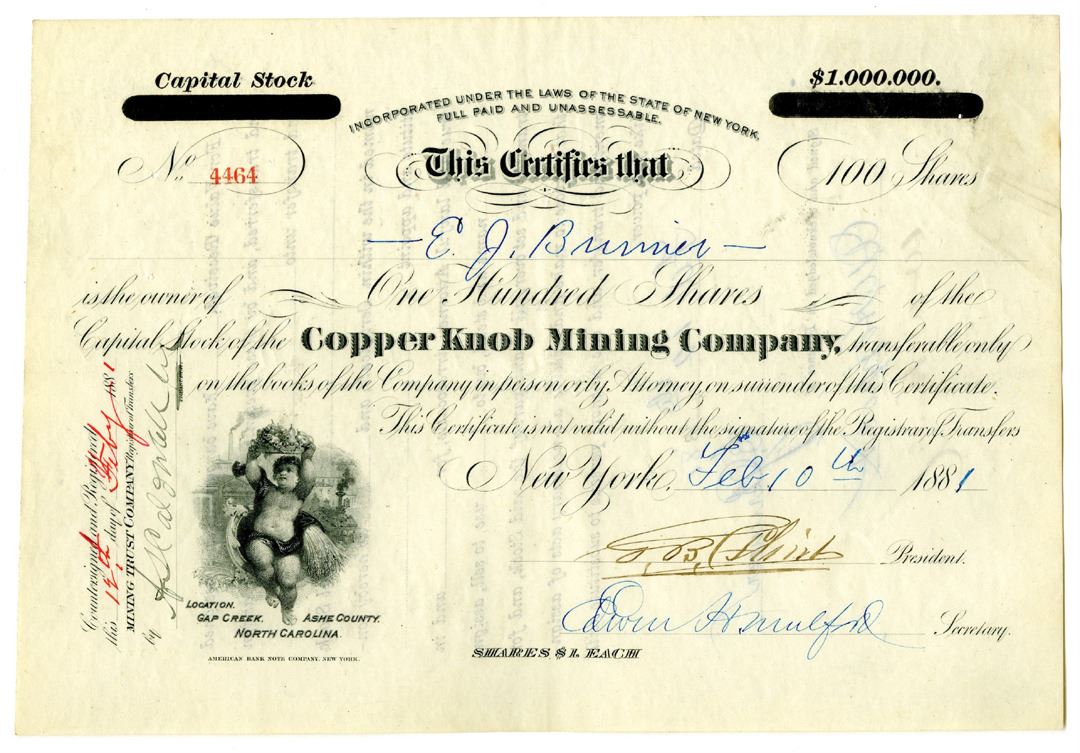 Capital Stock
$1.000.000.
INCORPORATED UNDER THE LAWS OF THE STATE OF NEW YORK.
FULL PAID AND UNASSESSABLE.
No. 4464
This Certifies that
100 Shares
— E. J. Brunner —
is the owner of One Hundred Shares of the
Capital Stock of the Copper Knob Mining Company, transferable only
on the books of the Company in person or by Attorney, on surrender of this Certificate.
This Certificate is not valid without the signature of the Registrar of Transfers
New York, Feb 10th 1881
President.
Edwin H Mulford Secretary.
SHARES $1. EACH
LOCATION.
GAP CREEK. ASHE COUNTY.
NORTH CAROLINA.
AMERICAN BANK NOTE COMPANY. NEW YORK.
Countersigned and Registered
this 12th day of Feby 1881
MINING TRUST COMPANY Registrar of Transfers
by